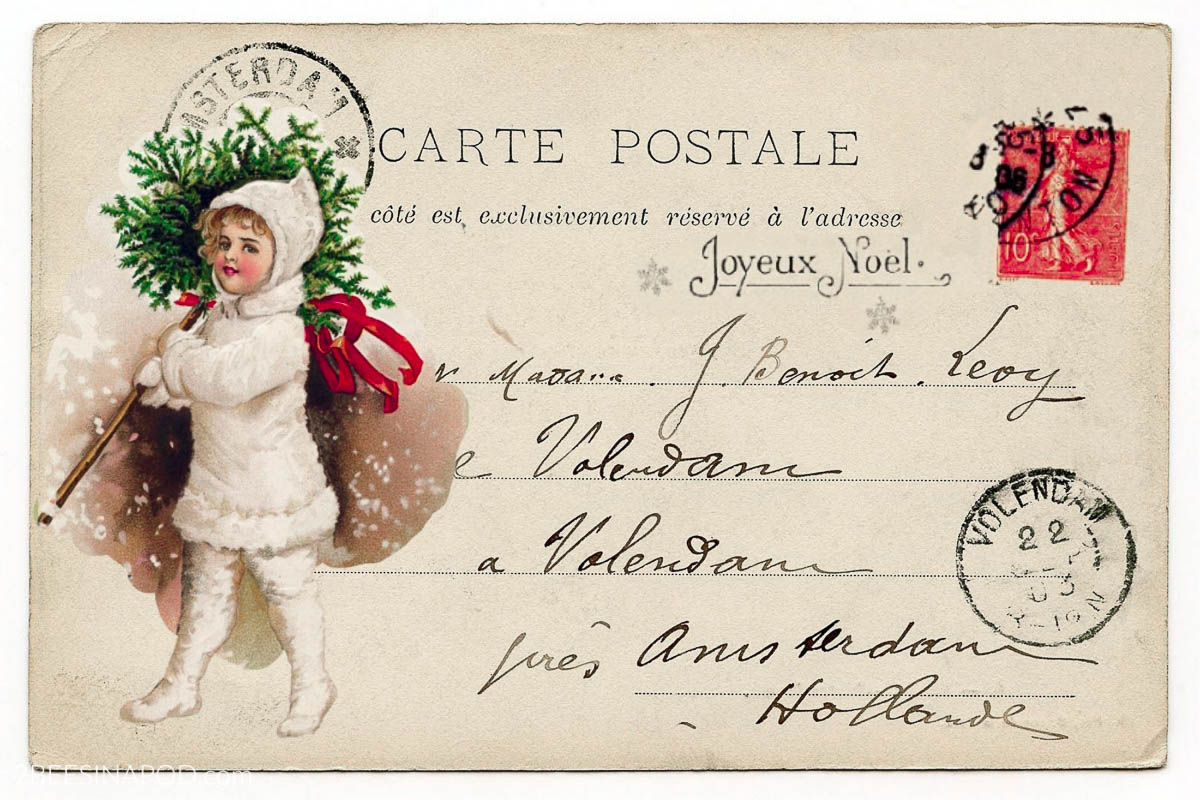 AMSTERDAM
CARTE POSTALE
côté est exclusivement réservé à l'adresse
Joyeux Noël.
10
Madame J. Benoit Levy
e Volendam
a Volendam
près Amsterdam
Hollande
VOLENDAM
22
03
2BEESINAPOD.com